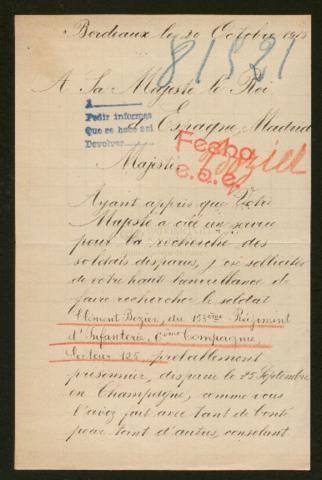 Bordeaux le 20 Octobre 1915
81521
A Sa Majesté le Roi
A
Pedir informes
Que se hebe asi
Devolver
d'Espagne, Madrid
Fecha
e.o.e.
Majesté
Ayant appris que Votre
Majesté a créé un service
pour la recherche des
soldats disparus, j'ose solliciter
de votre haute bienveillance de
faire rechercher le soldat
Clément Bozier, du 153ème Régiment
d'Infanterie, 6ème Compagnie,
Secteur 125, probablement
prisonnier, disparu le 25 Septembre
en Champagne, comme vous
l'avez fait avec tant de bonté
pour tant d'autres, consolant